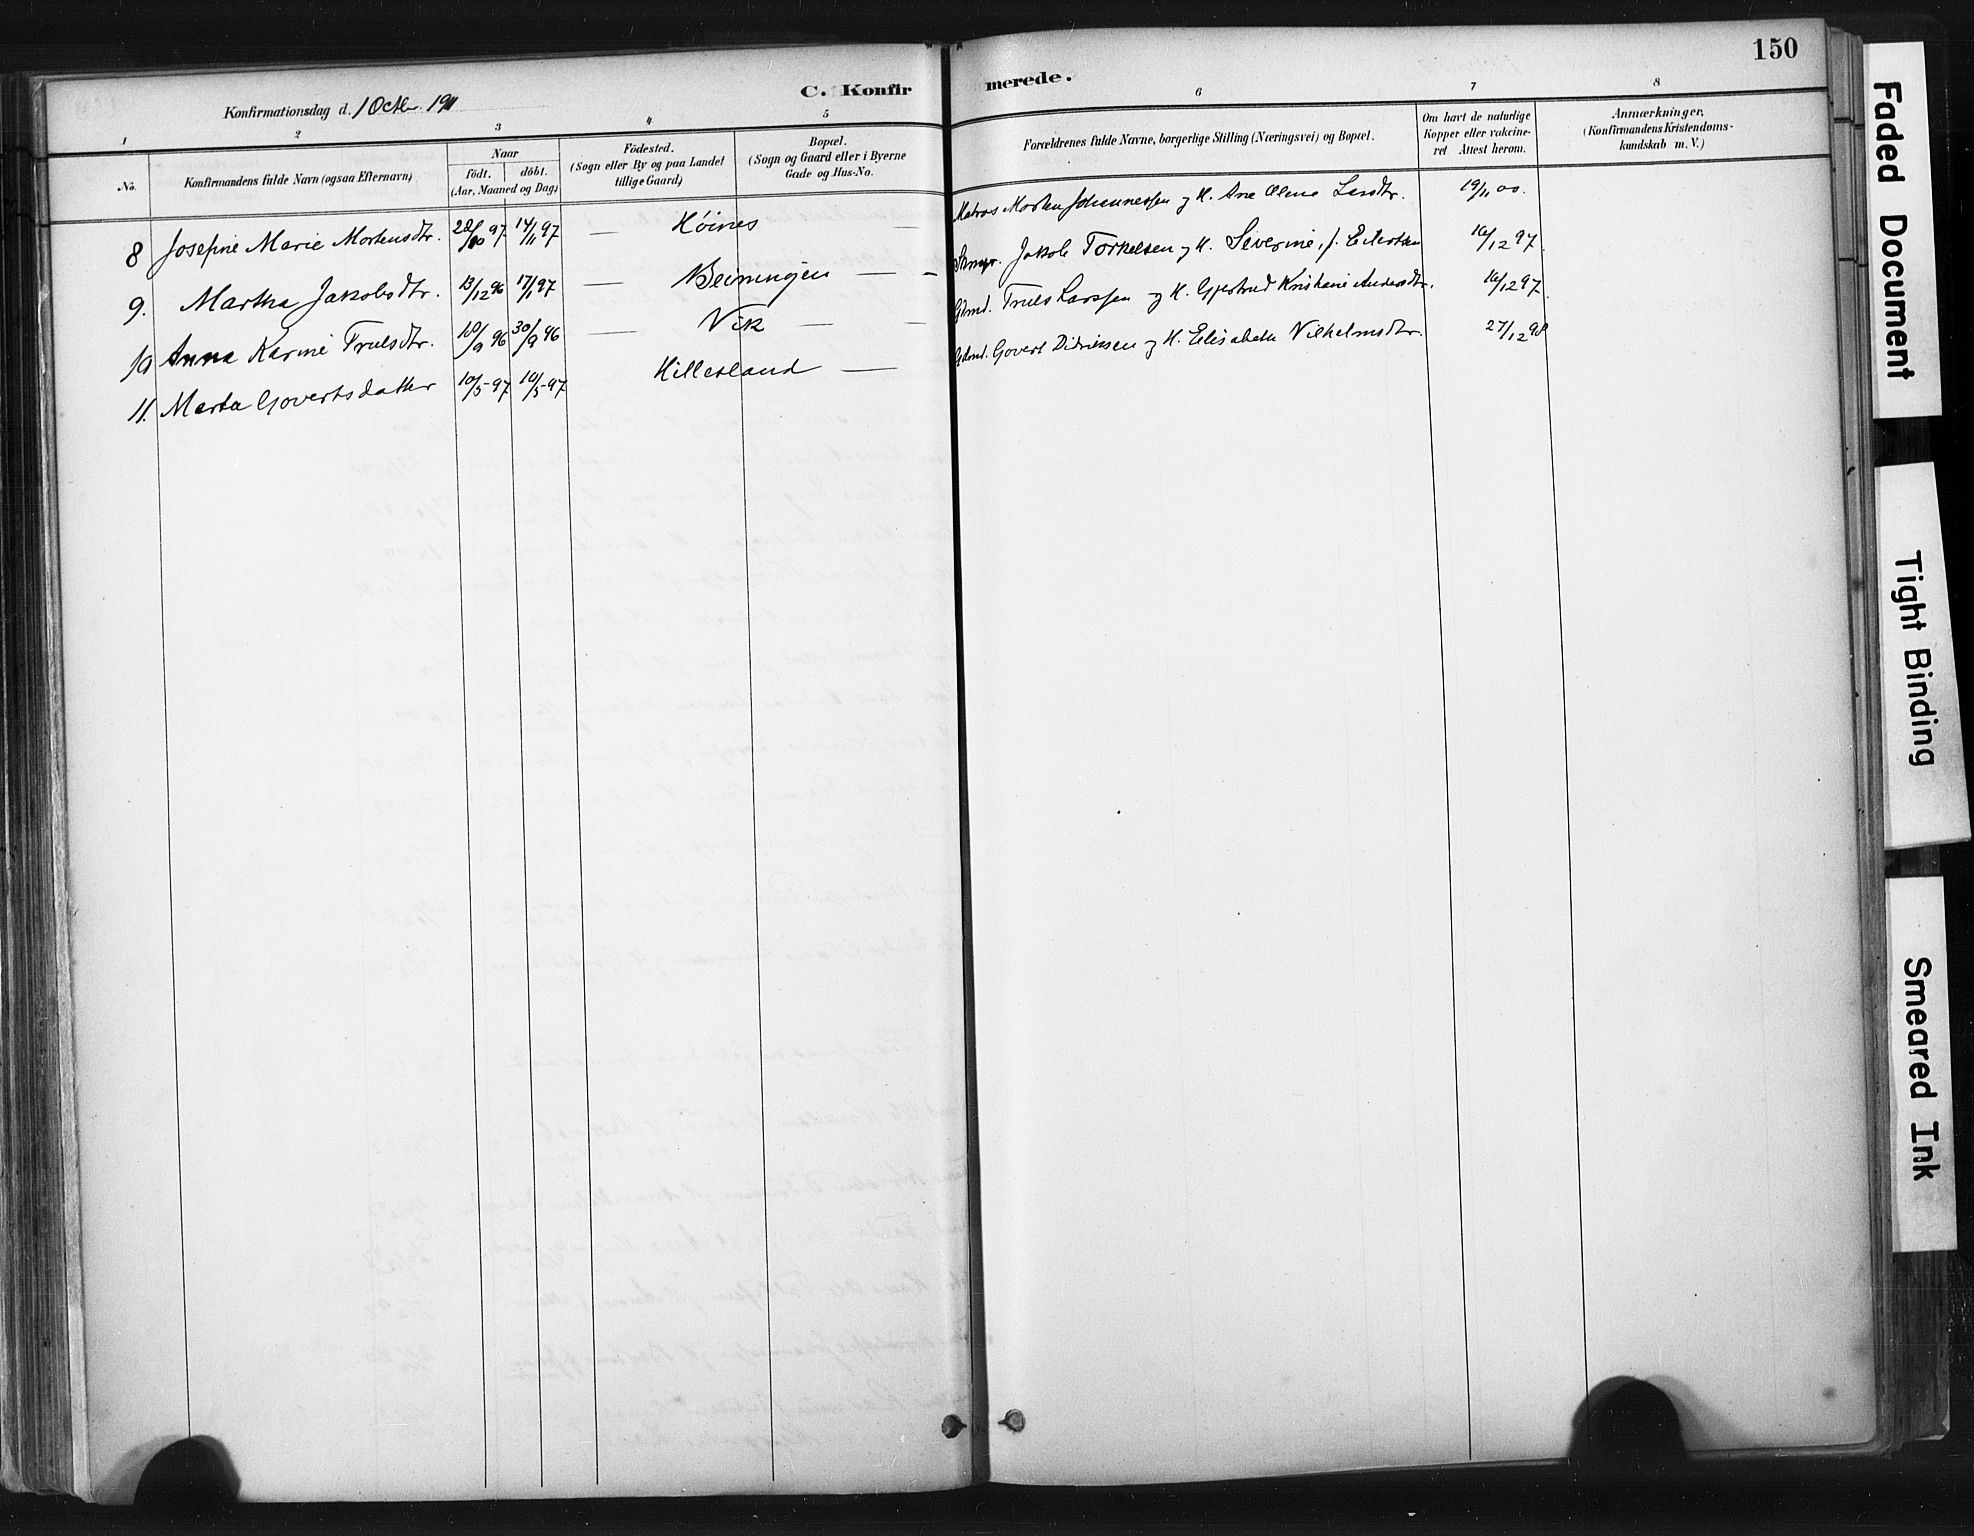 150
C. Konfirmerede.
Konfirmationsdag d. 1 Octbr. 1911
1 2 3 4 5 6 7 8
No.
Konfirmandens fulde Navn (ogsaa Efternavn)
Naar
födt. döbt.
(Aar, Maaned og Dag)
Födested.
(Sogn eller By og paa Landet
tillige Gaard)
Bopæl.
(Sogn og Gaard eller i Byerne
Gade og Hus-No.
Forældrenes fulde Navne, borgerlige Stilling (Næringsvei) og Bopæl.
Om havt de naturlige
Kopper eller vakcine-
ret Attest herom.
Anmærkninger,
(Konfirmandens Kristendoms-
kundskab m. V.)
8 Josefine Marie Mortensdtr. 28/10 97 14/11 97 — Höines — Matros Morten Johannessen og H. Ane Olene Larsdtr. 19/11 00.
9. Martha Jakobsdtr. 13/12 96 17/1 97 — — - Jakob Torkelsen og H. Severine, f. 16/12 97.
10 Anna Karine Trulsdtr. 10/9 96 30/9 96 — Vik — — Gdmd. Truls Larssen og H. Gjertrud Kristiane Andersdtr. 16/12 97.
11. Marta Govertsdatter 10/5-97 10/5-97 Hillesland — Gdmd. Govert Didriksen og H. Elisabeth Vilhelmsdtr. 27/12 98
Faded Document
Tight Binding
Smeared Ink